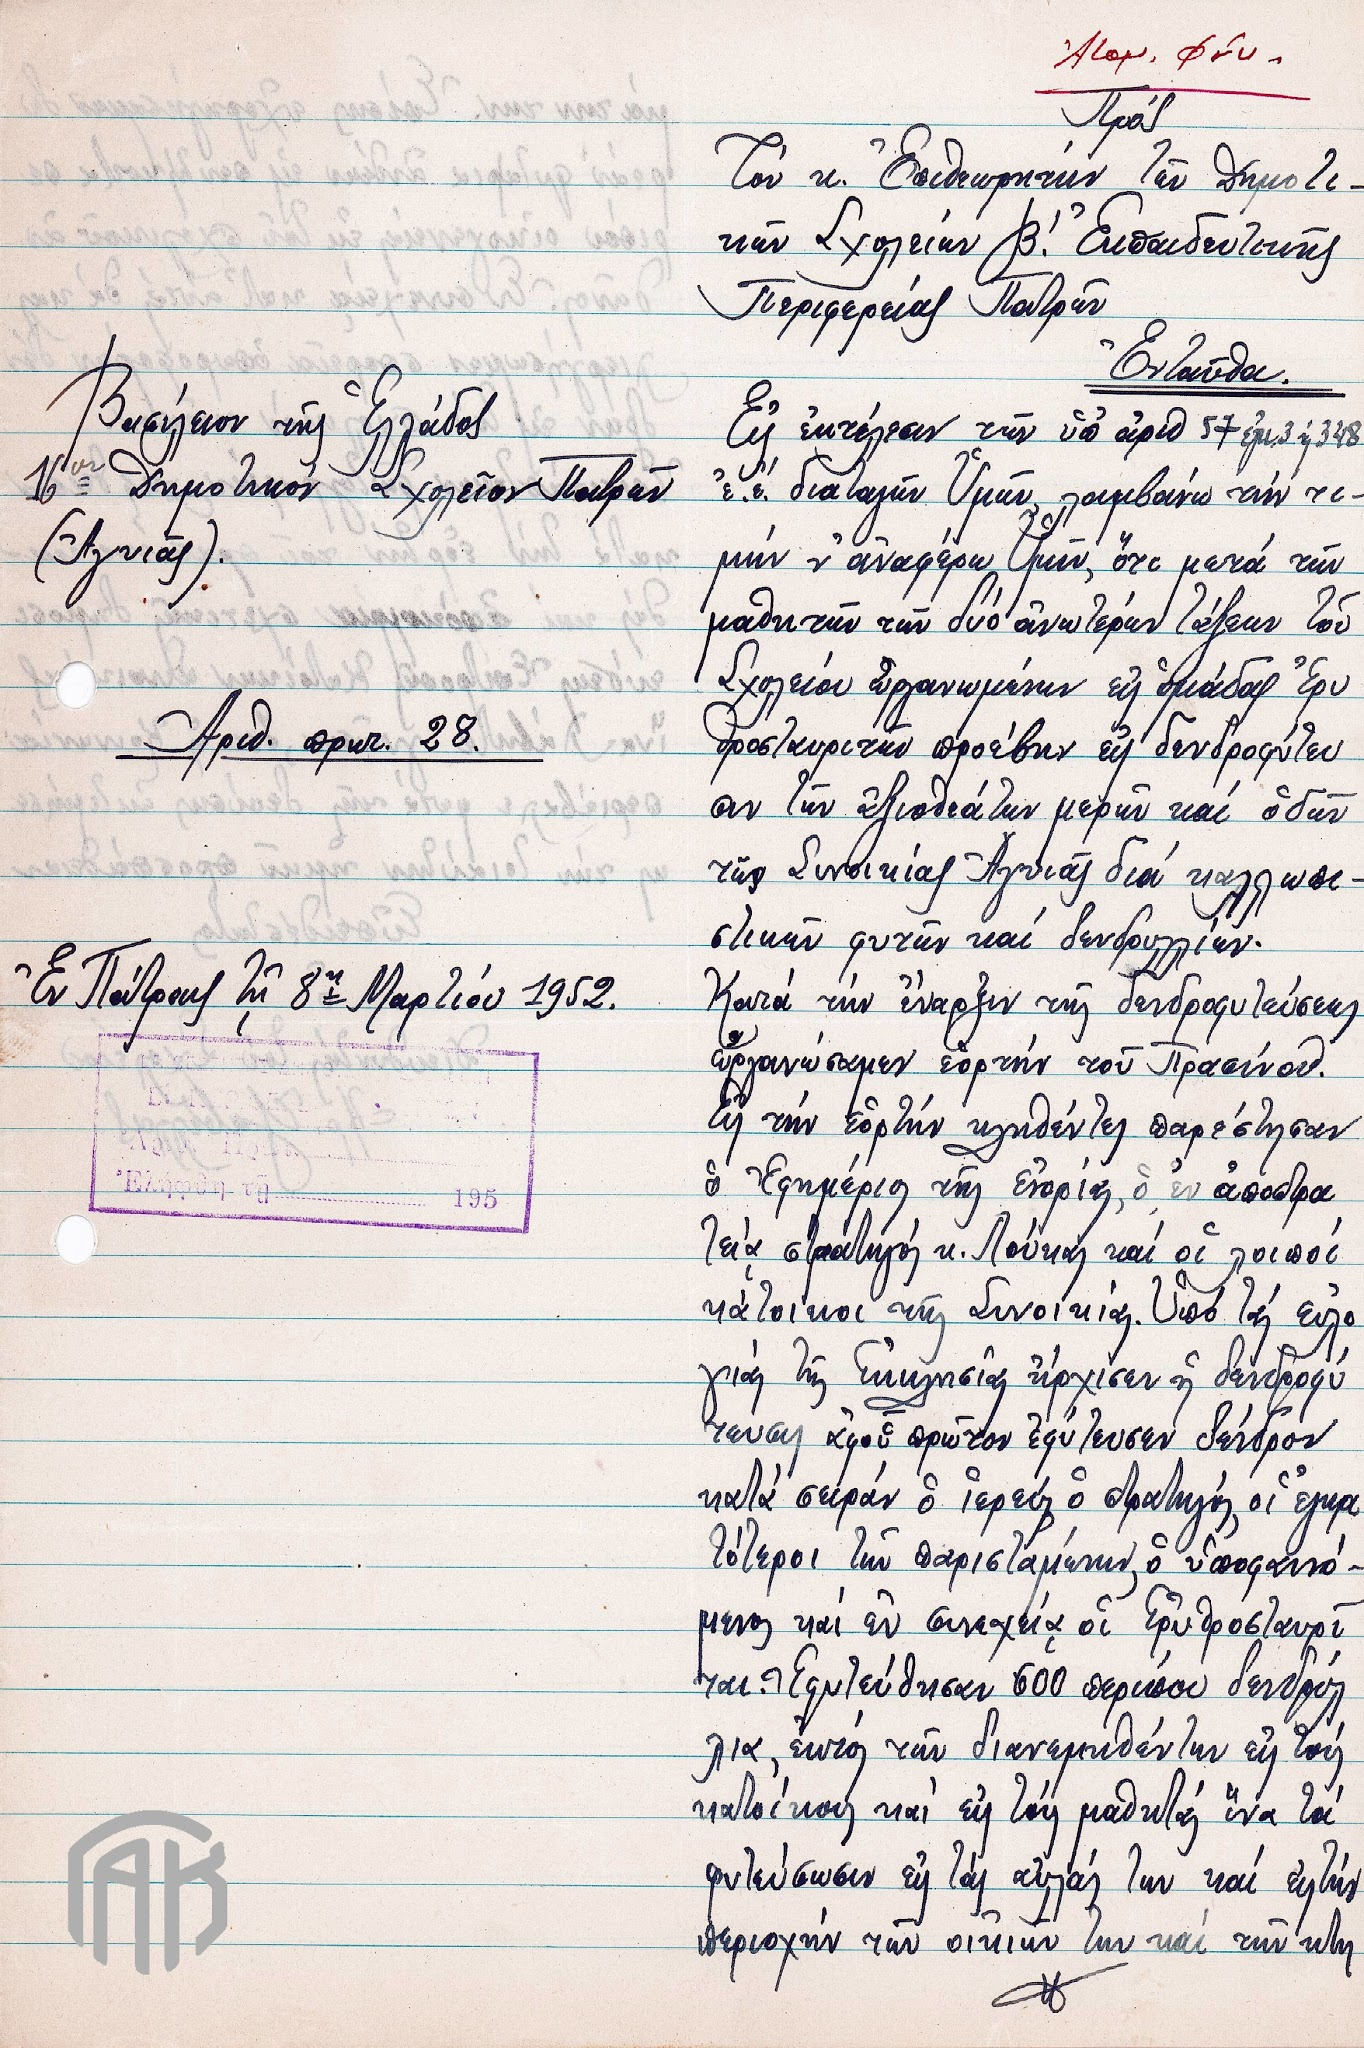 Ἀτομ. Φάκ.
Πρός
Τόν κ. Ἐπιθεωρητήν τῶν Δημοτι-
κῶν Σχολείων Β! Ἐκπαιδευτικῆς
Περιφερείας Πατρῶν
Ἐνταῦθα.
Βασίλειον τῆς Ἑλλάδος
16ον Δημοτικόν Σχολεῖον Πατρῶν
(Ἁγυιᾶς).
Ἀριθ. πρωτ. 28.
Ἐν Πάτραις τῇ 8ῃ Μαρτίου 1952.
Ἐλήφθη τῇ 195
Εἰς ἐκτέλεσιν τῶν ὑπ' ἀριθ 57
ἐ.ἔ. διαταγῶν Ὑμῶν, λαμβάνω τήν τι-
μήν ν' ἀναφέρω Ὑμῖν, ὅτι μετά τῶν
μαθητῶν τῶν δύο ἀνωτέρων τάξεων τοῦ
Σχολείου ὠργανωμένων εἰς ὁμάδας Ἐρυ
θροσταυριτῶν προέβην εἰς δενδροφύτευ
σιν τῶν ἀξιοθεάτων μερῶν καί ὁδῶν
τῆς Συνοικίας Ἁγυιᾶς διά καλλωπι-
στικῶν φυτῶν καί δενδρυλλίων.
Κατά τήν ἔναρξιν τῆς δενδροφυτεύσεως
ὠργανώσαμεν ἑορτήν τοῦ Πρασίνου.
Εἰς τήν ἑορτήν κληθέντες παρέστησαν
ὁ Ἐφημέριος τῆς ἐνορίας, ὁ ἐν ἀποστρα
τείᾳ στρατηγός κ. Λούκας καί οἱ λοιποί
κάτοικοι τῆς Συνοικίας. Ὑπό τάς εὐλο
γίας τῆς Ἐκκλησίας ἤρχισεν ἡ δενδροφύ
τευσις ἀφοῦ πρῶτον ἐφύτευσεν δένδρον
κατά σειράν ὁ ἱερεύς ὁ στρατηγός, οἱ ἐγκρι
τότεροι τῶν παρισταμένων, ὁ ὑποφαινό-
μενος καί ἐν συνεχείᾳ οἱ Ἐρυθροσταυρῖ
ται. Ἐφυτεύθησαν 600 περίπου δενδρύλ
λια, ἐκτός τῶν διανεμηθέντων εἰς τούς
κατοίκους καί εἰς τούς μαθητάς ἵνα τά
φυτεύσωσιν εἰς τάς αὐλάς των καί εἰς τήν
περιοχήν τῶν οἰκιῶν των καί τῶν κτη
ΓΑΚ